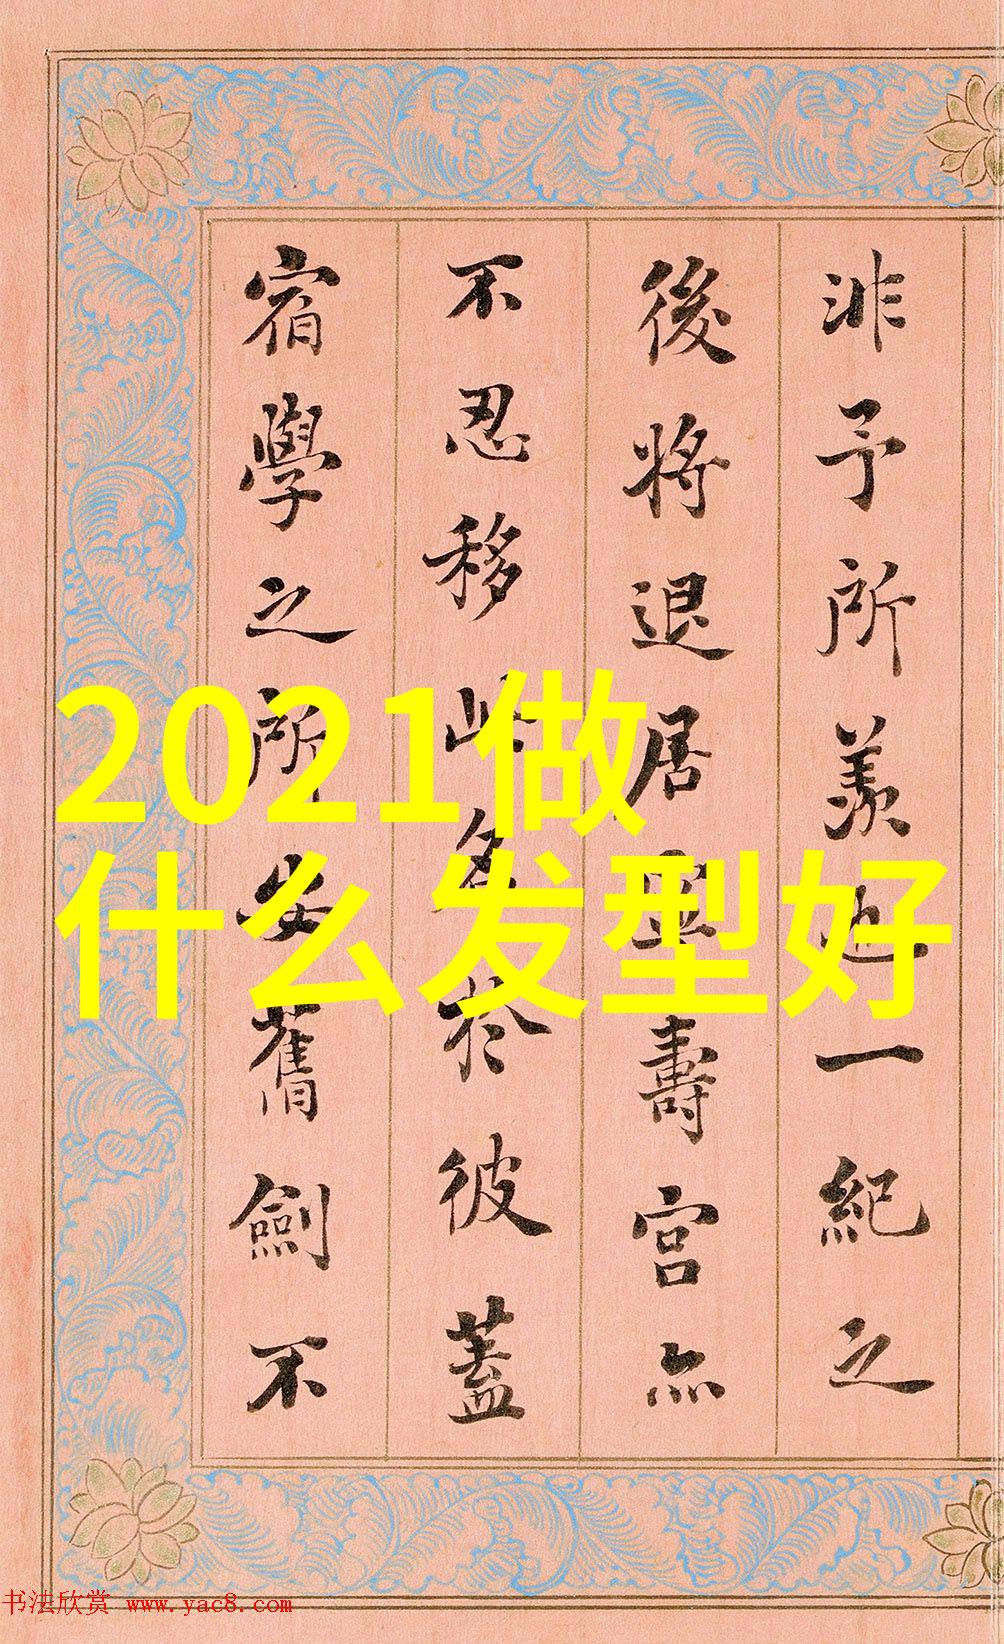 非予所羡也一紀之
後將退居寧壽宮亦
不忍移此名於彼蓋
宿學之所安舊劍不
2021做
什么发型好
书法欣赏 www.yac8.com